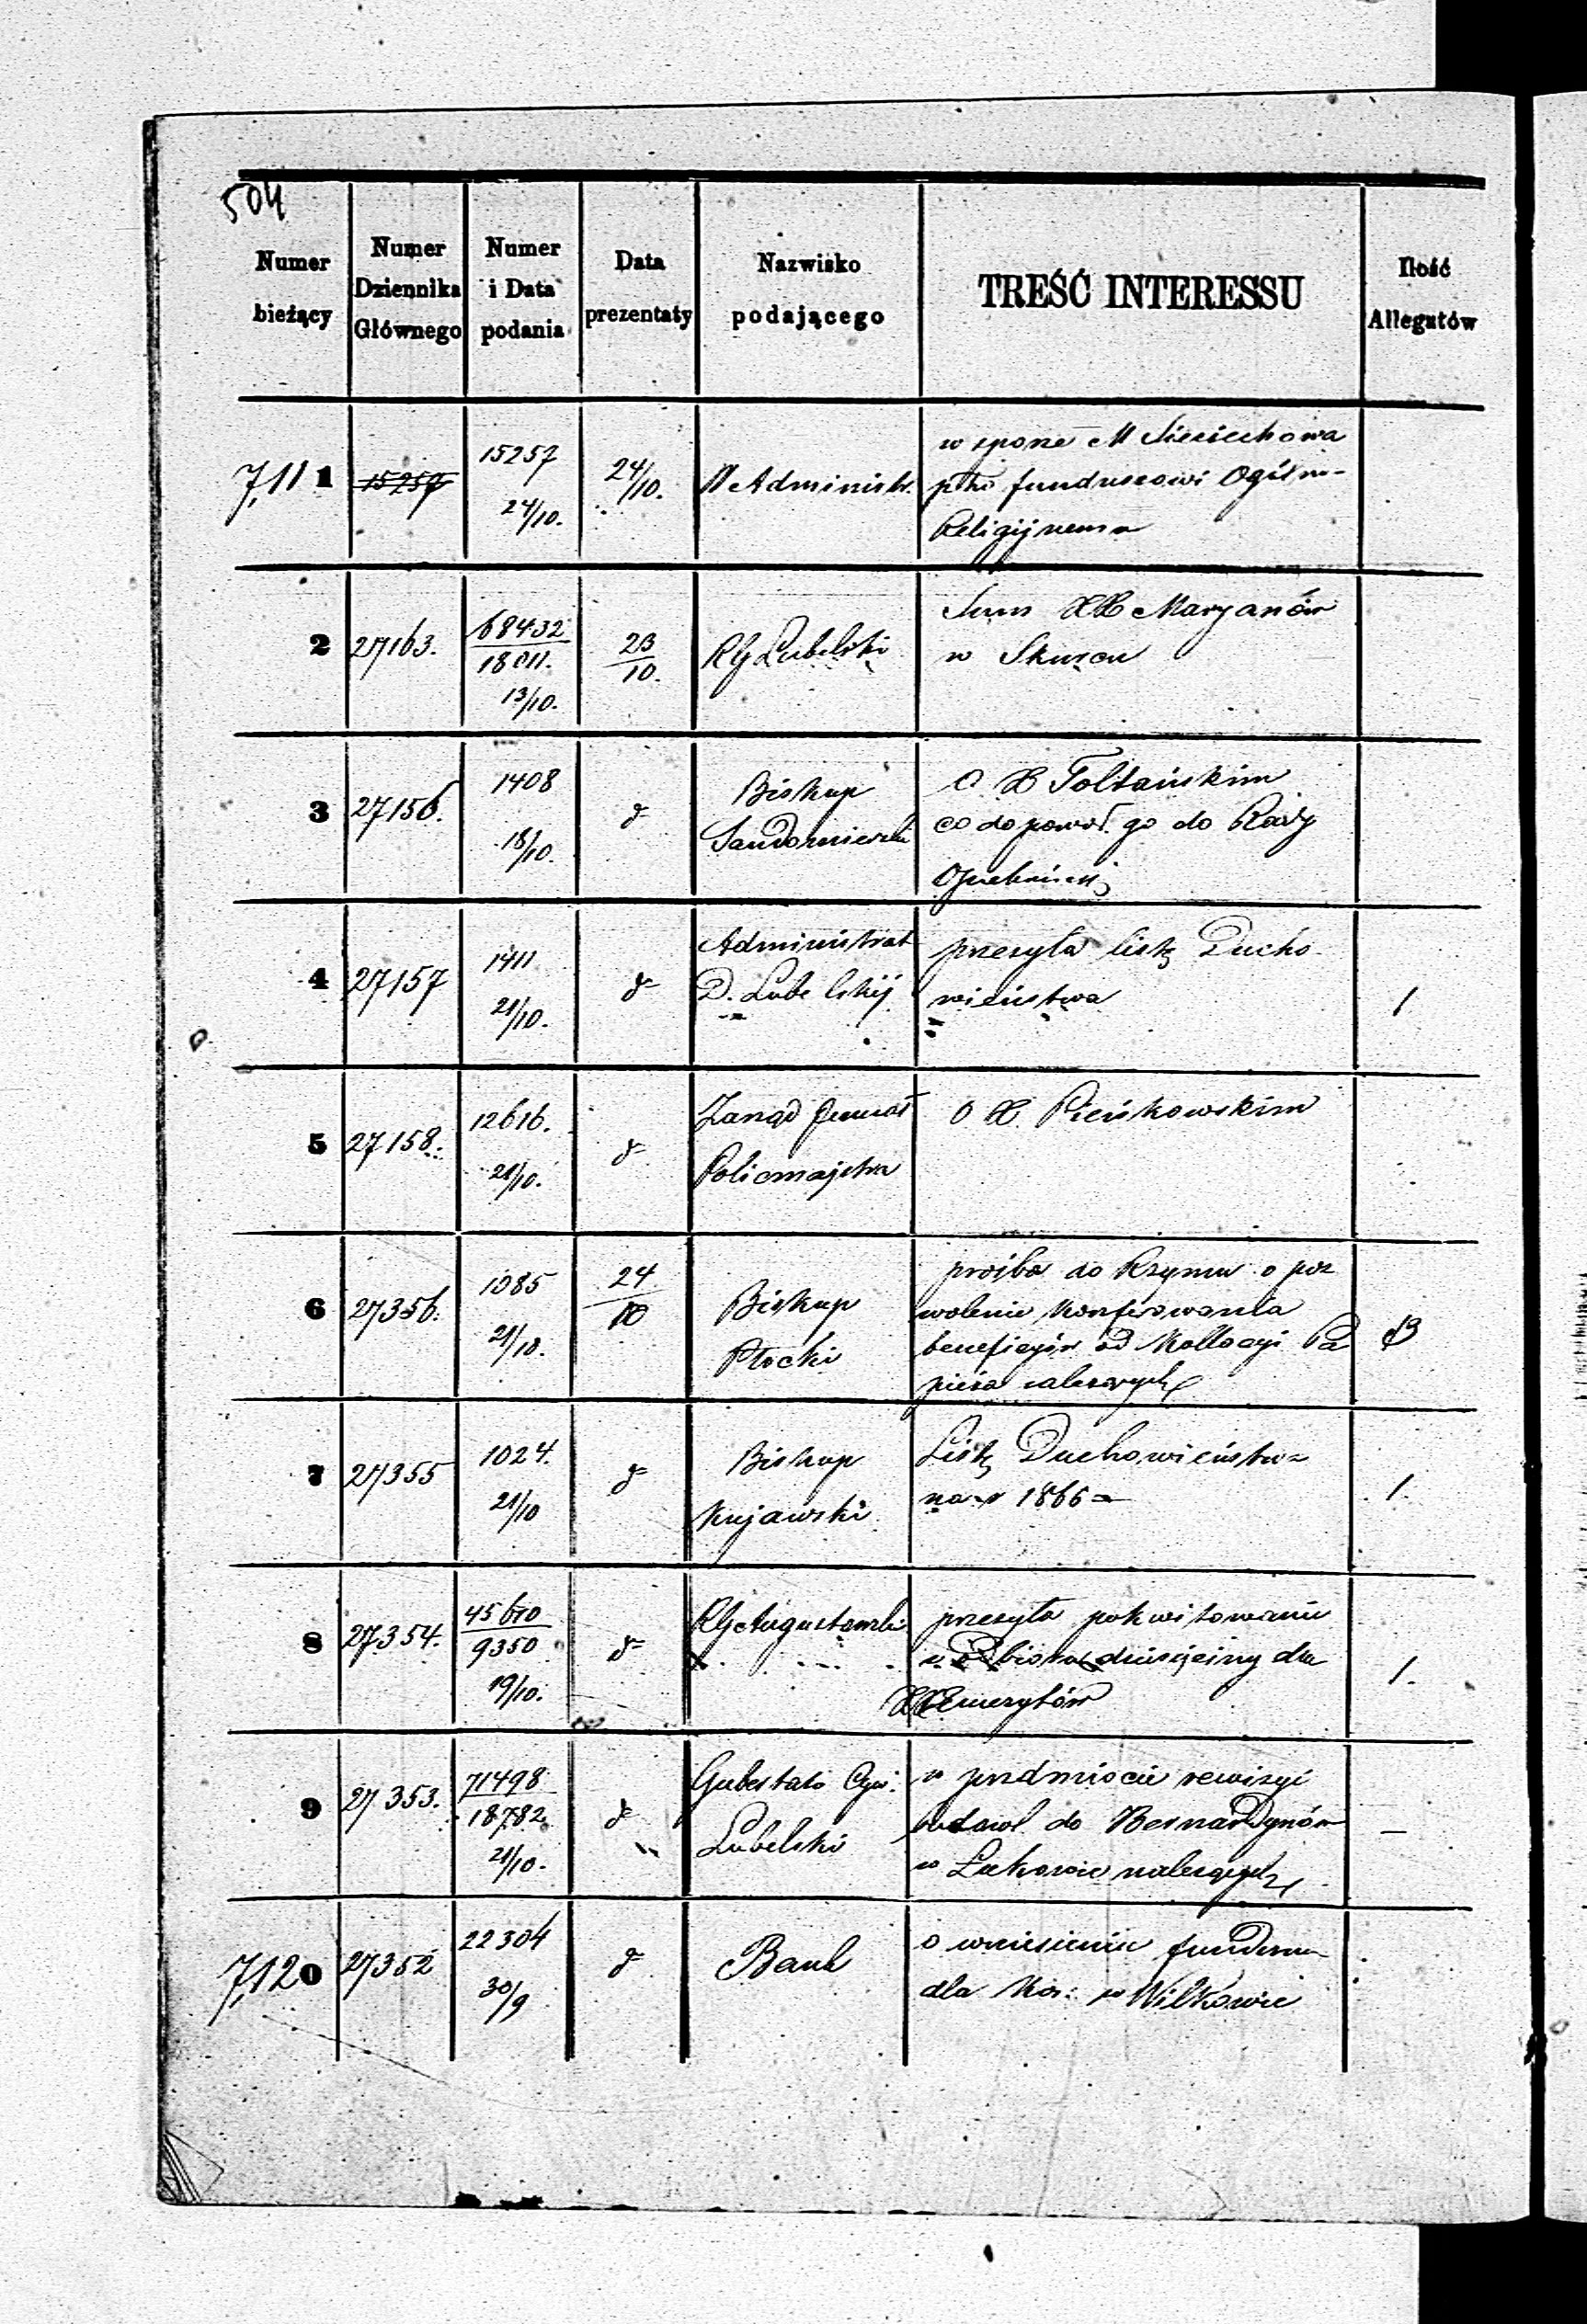 504
Numer bieżący
Numer Dziennika Głównego
Numer i Data podania
Data prezentaty
Nazwisko podającego
TREŚĆ INTERESSU
Ilość Allegatów
7,111
15257
15257
24/10.
24/10.
W Administr.
w sporze M Sieciechowa
pko funduszowi Ogólno-
Religijnemu
2
27163.
68432
18011.
13/10.
23
10.
RG Lubelski
Sum XX Maryanów
w Skurcu
3
27156.
1408
18/10.
d
Biskup
Sandomierski
O X
co do powoł. go do Rady
Opiekuńczej
4
27157
1411
21/10.
d
Administrat
D. Lubelskiej
przesyła listę Ducho
wieństwa
1
5
27158.
12616.
21/10.
d
Zarząd Generał
Policmajstra
O X. Pieńkowskim
6
27356.
1085
21/10.
24
10
Biskup
Płocki
prośba do Rzymu o poz
wolenie konferowania
beneficyów od Kollacyi Pa
pieża należących
7
27355
1024.
21/10
d
Biskup
Kujawski
Listę Duchowieństwa
na r 1866
1.
8
27354.
45610
9350
19/10.
d
RG Augustowski
przesyła pokwitowanie
z odbioru dziesięciny dla
XX Emerytów
1.
9
27353.
71498
18782
21/10.
d
Gubernator Cyw:
Lubelski
w przedmiocie rewizyi
budowl do Bernardynów
w Łukowie należących
—
7,120
27352
22304
30/9
d
Bank
o wniesienie funduszu
dla Koś: w Wilkowie